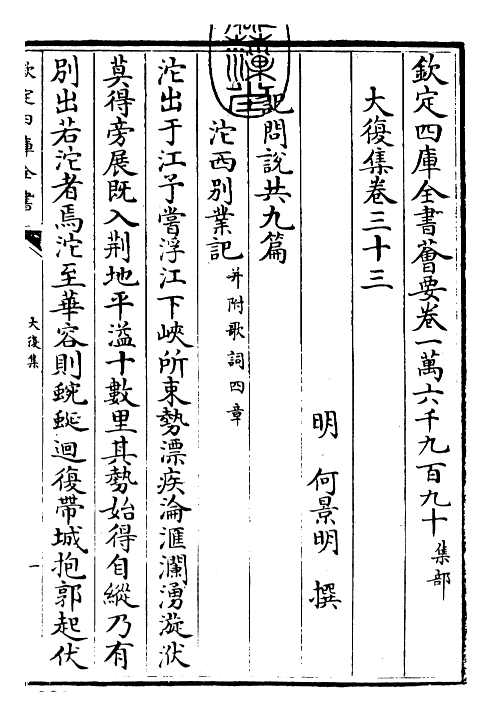 欽定四庫全書薈要卷一萬六千九百九十集部
大復集卷三十三
明何景明撰
記問說共九篇
沱西別業記并附歌詞四章
沱出于江予嘗浮江下峽所束勢漂疾淪滙瀾湧漩洑
莫得旁展既入荆地平溢十數里其勢始得自縱乃有
別出若沱者焉沱至華容則蜿蜒迴復帶城抱郭起伏
欽定四庫全書
大復集
一